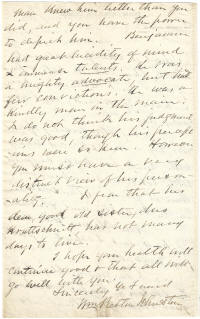 man knew him better than you
did, and you have the power
to depict him. Benjamin
had great lucidity of mind
& immense talents. He was
a mighty advocate, but had
few convictions. He was a
kindly man in the main.
I do not think his judgment
was good, though his percep-
tions were so keen. However
you must have a very
distinct view of his person-
ality. I fear that his
dear, good old sister, Mrs
Kruttschnitt, has not many
days to live.
I hope your health will
continue good & that all will
go well with you.
Sincerely yr friend
Wm Preston Johnston